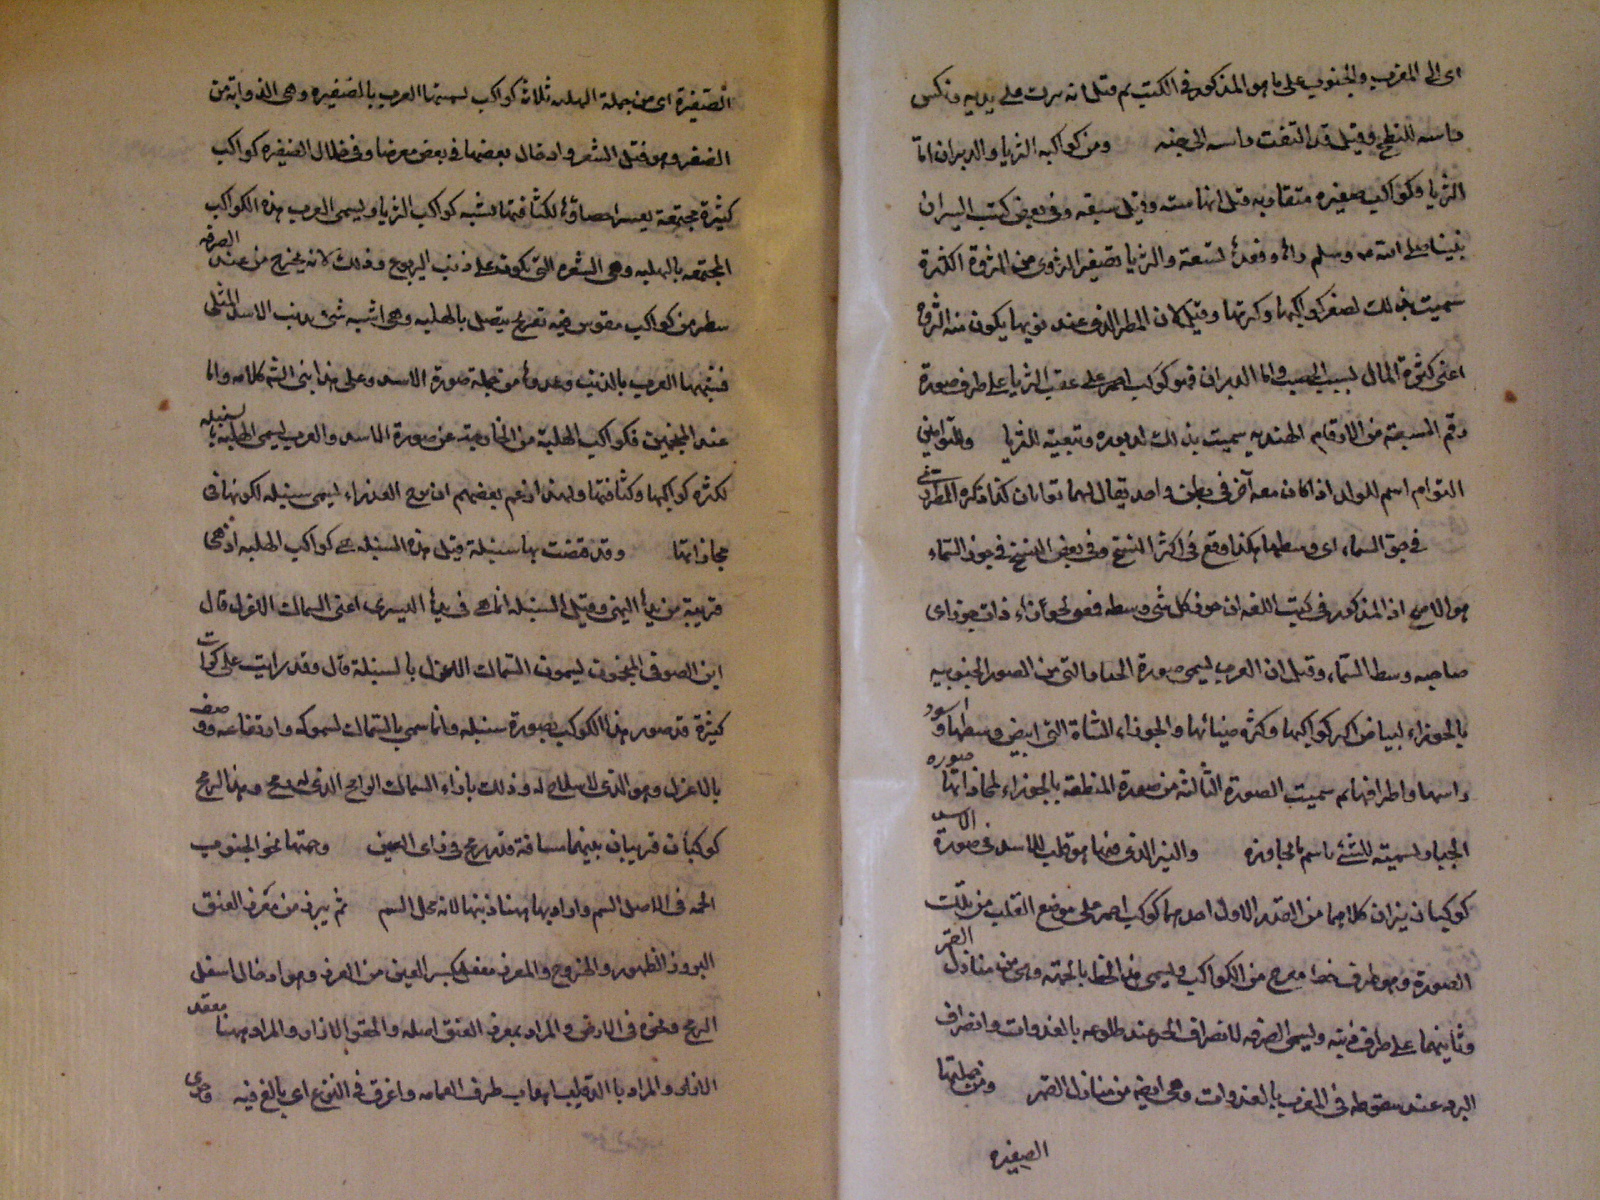 اى الى المغرب والجنوب على ما هو المذكور فى الكتب ثم قيل انه برت على يديه ونكس
راسه للنطح وقيل قد التفت راسه الى جنبه ومن كواكبه الثريا والدبران اما
الثريا فكواكب صغيره متقاربه قيل انها سته وقيل سبعه وفى بعض كتب السير ان
نبينا صلى الله عليه وسلم رأه وفعدأ لتسعة والثريا تصغير الثروى من الثروة الكثرة
سميت بذلك لصغر كواكبها وكثرتها وقيل لان المطر الذى عند نويها يكون منه الثروة
اعنى كثرة المال بسبب الخصب واما الدبران فهو كوكب احمر على عقب الثريا على طرف صورة
رقم السبعة من الارقام الهنديه سميت بذلك لدبوره وتبعيته الثريا والتوامين
التوام اسم للولد اذا كان معه آخر فى بطن واحد يقال لهما توامان كذا ذكره المطرزى
فى جو السماء اى وسطها هكذا وقع فى اكثر النسخ وفى بعض النسخ فى جوف السماء
هو الاصح اذ المذكور فى كتب اللغه ان جوف كل شى وسطه فمعنى جوزاء ذات جوز اى
صاحبه وسط السماء وقيل ان العرب ليسمى صورة الجبار التى من الصور الجنوبيه
بالجوزاء لبياض اكبر كواكبها وكثره ضيائها والجوزاء الشاة التى ابيض وسطها واسود
راسها واطرافها ثم سميت الصورة الثالثة من صورة المنطقة بالجوزاء لمحاذاتها صوره
الجبار تسمية للشئ باسم مجاوره والنير الذى منها هو قلب الاسد فى صورة الاسد
كوكبان نيران كلاهما من القدر الاول احدهما كوكب احمر على موضع القلب من تلك
الصورة وهو طرف خط معوج من الكواكب وليسمى هذا الخط بالجبهة وهى من منازل القمر
وثانيهما على طرف ذنبه وليسمى الصرفه لانصراف الحر عند طلوعه بالغدوات وانصراف
البرد عند سقوطه فى المغرب بالغدوات وهى ايضه من منازل القمر ومن جملتها
الضفيره
الضفيرة اى من جملة الهلبه ثلاثة كواكب لسميتها العرب بالضفيره وهى الذوابة من
الضفر وهو فتل الشعر وادخال بعضها فى بعض معرضا وفى خلال الضفيره كواكب
كثيرة مجتمعة يعسر احصاؤها لكثافتها تشبه كواكب الثريا وليسمى العرب هذه الكواكب
المجتمعه بالهلبه وهى الشعره التى تكون على ذنب اليربوع وذلك لانه يخرج من عند الصرفه
سطر من كواكب مقوس فيه تعريج يتصل بالهلبه وهى اشبه شئ بذنب الاسد المثلى
فشبهها العرب بالذنب وعدوها من جملة صورة الاسد وعلى هذا بنى الشم كلامه واما
عند المنجمين فكواكب الهلبة من الخارجة عن صورة الاسد والعرب ليسمى الهلبة بالسنبله
لكثره كواكبها وكثافتها ولهذا زعم بعضهم ان برج العذراء ليسمى سنبله لكونها فى
محاذاتها وقد قبضت بها سنبلة قيل هذه السنبله هى كواكب الهلبه اذ هى
قريبة من يدها اليمنى وقيل السنبله انما هى فى يدها اليسرى اعنى السماك الاعزل قال
ابن الصوفى المنجمون ليسمون السماك الاعزل بالسنبلة قال وقد رايت على كرات
كثيرة قد صور هذا الكوكب بصورة سنبله وانما سمى بالسماك لسموكه وارتفاعه ووصف
بالاعزل وهو الذى لا سلاح له وذلك بازاء السماك الرامح الذى له رمح وهذا الرمح
كوكبان قريبان بينهما مسافة قدر رمح فى راى العين وحمتها نحو الجنوب
الحمه فى الاصل السم واراد بها ههنا ذنبها لانه محل السم ثم يبرز من مغرز العنق
البروز الظهور والخروج والمغرز مفعل بكسر العين من الغرز وهو ادخال اسفل
الرمح ونحوه فى الارض والمراد بمغرز العنق اصله والحقو الازار والمراد ههنا معقد
الازار والمراد بالذوايب اهداب طرف العمامه واغرق فى النزع اى بالغ فيه وهى